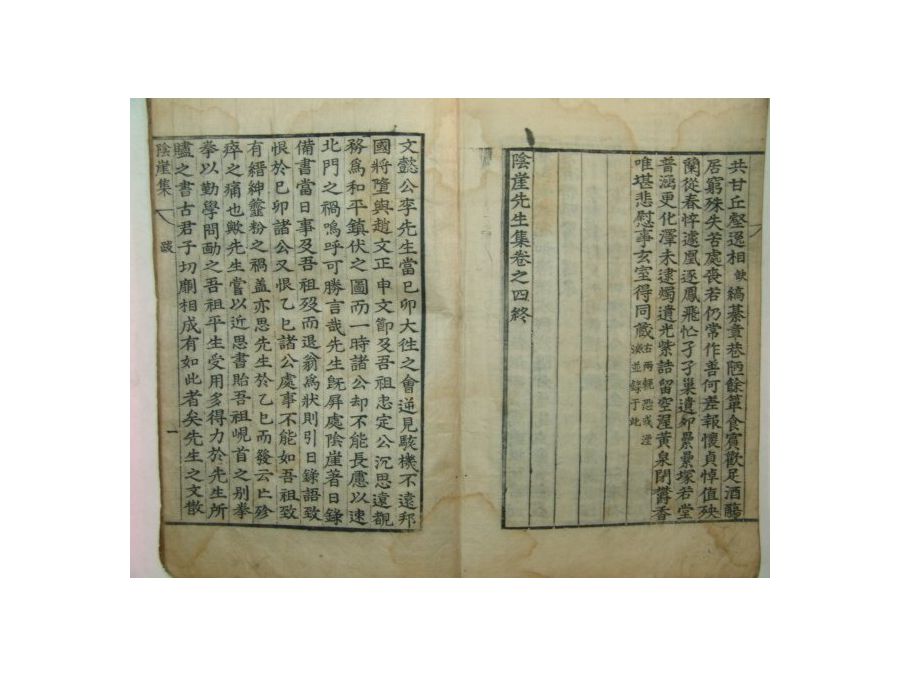 共甘丘壑遜相 缺 縞綦壹巷陋餘簞食賓歡足酒醪
居窮殊失苦處喪若仍常作善何差報懷貞悼值殃
蘭從春悴遽凰逐鳳飛忙孑孑巢遺卵纍纍塚若堂
普涵更化澤未逮燭遺光紫誥留空渥黃泉閉鬱香
唯堪悲慰事玄室得同藏 右兩輓恐或湮
滅並錄于此
陰崖先生集卷之四終
文懿公李先生當己卯大往之會逆見駭機不遠邦
國將墮與趙文正申文節及吾祖忠定公沉思遠覩
務爲和平鎭伏之圖而一時諸公却不能長慮以速
北門之禍嗚呼可勝言哉先生旣屛處陰崖著日錄
備書當日事及吾祖歿而退翁爲狀則引日錄語致
恨於己卯諸公又恨乙巳諸公處事不能如吾祖致
有縉紳虀粉之禍盖亦思先生於乙巳而發云亡殄
瘁之痛也歟先生嘗以近思書貽吾祖峴首之別拳
拳以勤學問勔之吾祖平生受用多得力於先生所
贐之書古君子切劘相成有如此者矣先生之文散
陰崖集 跋 一